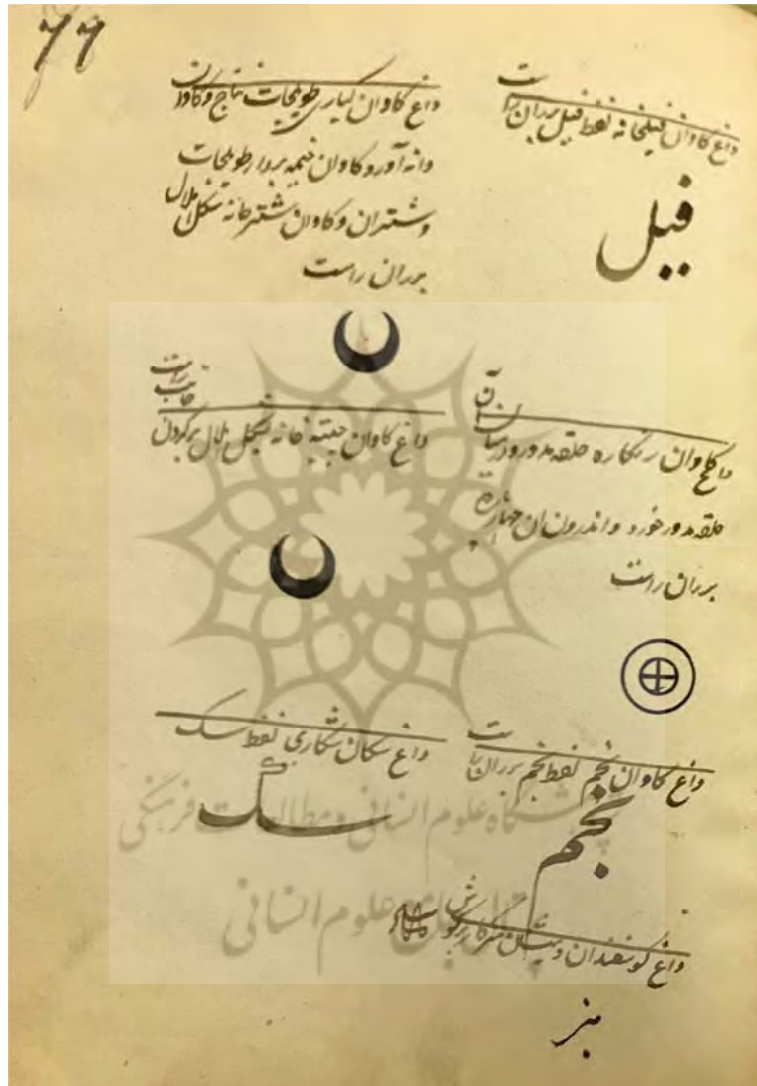 ۶۶
داغ کاوان فیلخانه لفظ فیل بر ران راست
فیل
داغ کاوان کیاری طویلجات نتاج و کاوان
دانه آور و کاوان خیمه بردار طویلجات
و شتران و کاوان شترخانه شکل هلال
بر ران راست
داغ کاوان رنکاره حلقه مدور و درمیان آن
حلقه مدور خورد و اندرون ان چهارپاره
بر ران راست
داغ کاوان چیته خانه شکل هلال بر کردن جانب راست
داغ کاوان نجم لفظ نجم بر ران راست
نجم
داغ سکان شکاری لفظ سک
سگ
داغ کوسفندان و میشان سرکار بر کوش
بز
پژوهشگاه علوم انسانی و مطالعات فرهنگی
پرتال جامع علوم انسانی